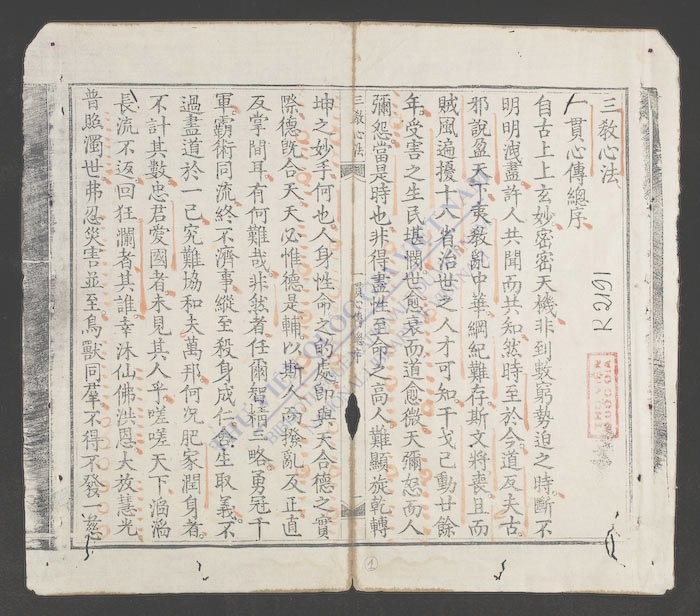 三教心法
一貫心傳總序
自古上上玄妙密密天機非到數窮勢迫之時斷不
明明洩盡許人共聞而共知然時至於今道反夫古
邪說盈天下夷教亂中華綱紀難存斯文將喪且而
賊風遍擾十八省治世之人才可知干戈已動廿餘
年受害之生民堪憫世愈衰而道愈微天彌怒而人
彌怨當是時也非得盡性至命之高人難顯旋乾轉
三教心法
一貫心傳總序
一
坤之妙手何也人身性命之的處即與天合德之實
際德既合天天必惟德是輔以斯人而撥亂反正直
反掌間耳有何難哉非然者任爾智精三略勇冠千
軍霸術同流終不濟事縱至殺身成仁舍生取義不
過盡道於一己究難協和夫萬邦何况肥家潤身者
不計其數忠君愛國者未見其人乎嗟嗟天下滔滔
長流不返回狂瀾者其誰幸沐仙佛洪恩大放慧光
普照濁世弗忍災害並至鳥獸同羣不得不發一慈
R2191
THƯ VIỆN
QUỐC GIA
1